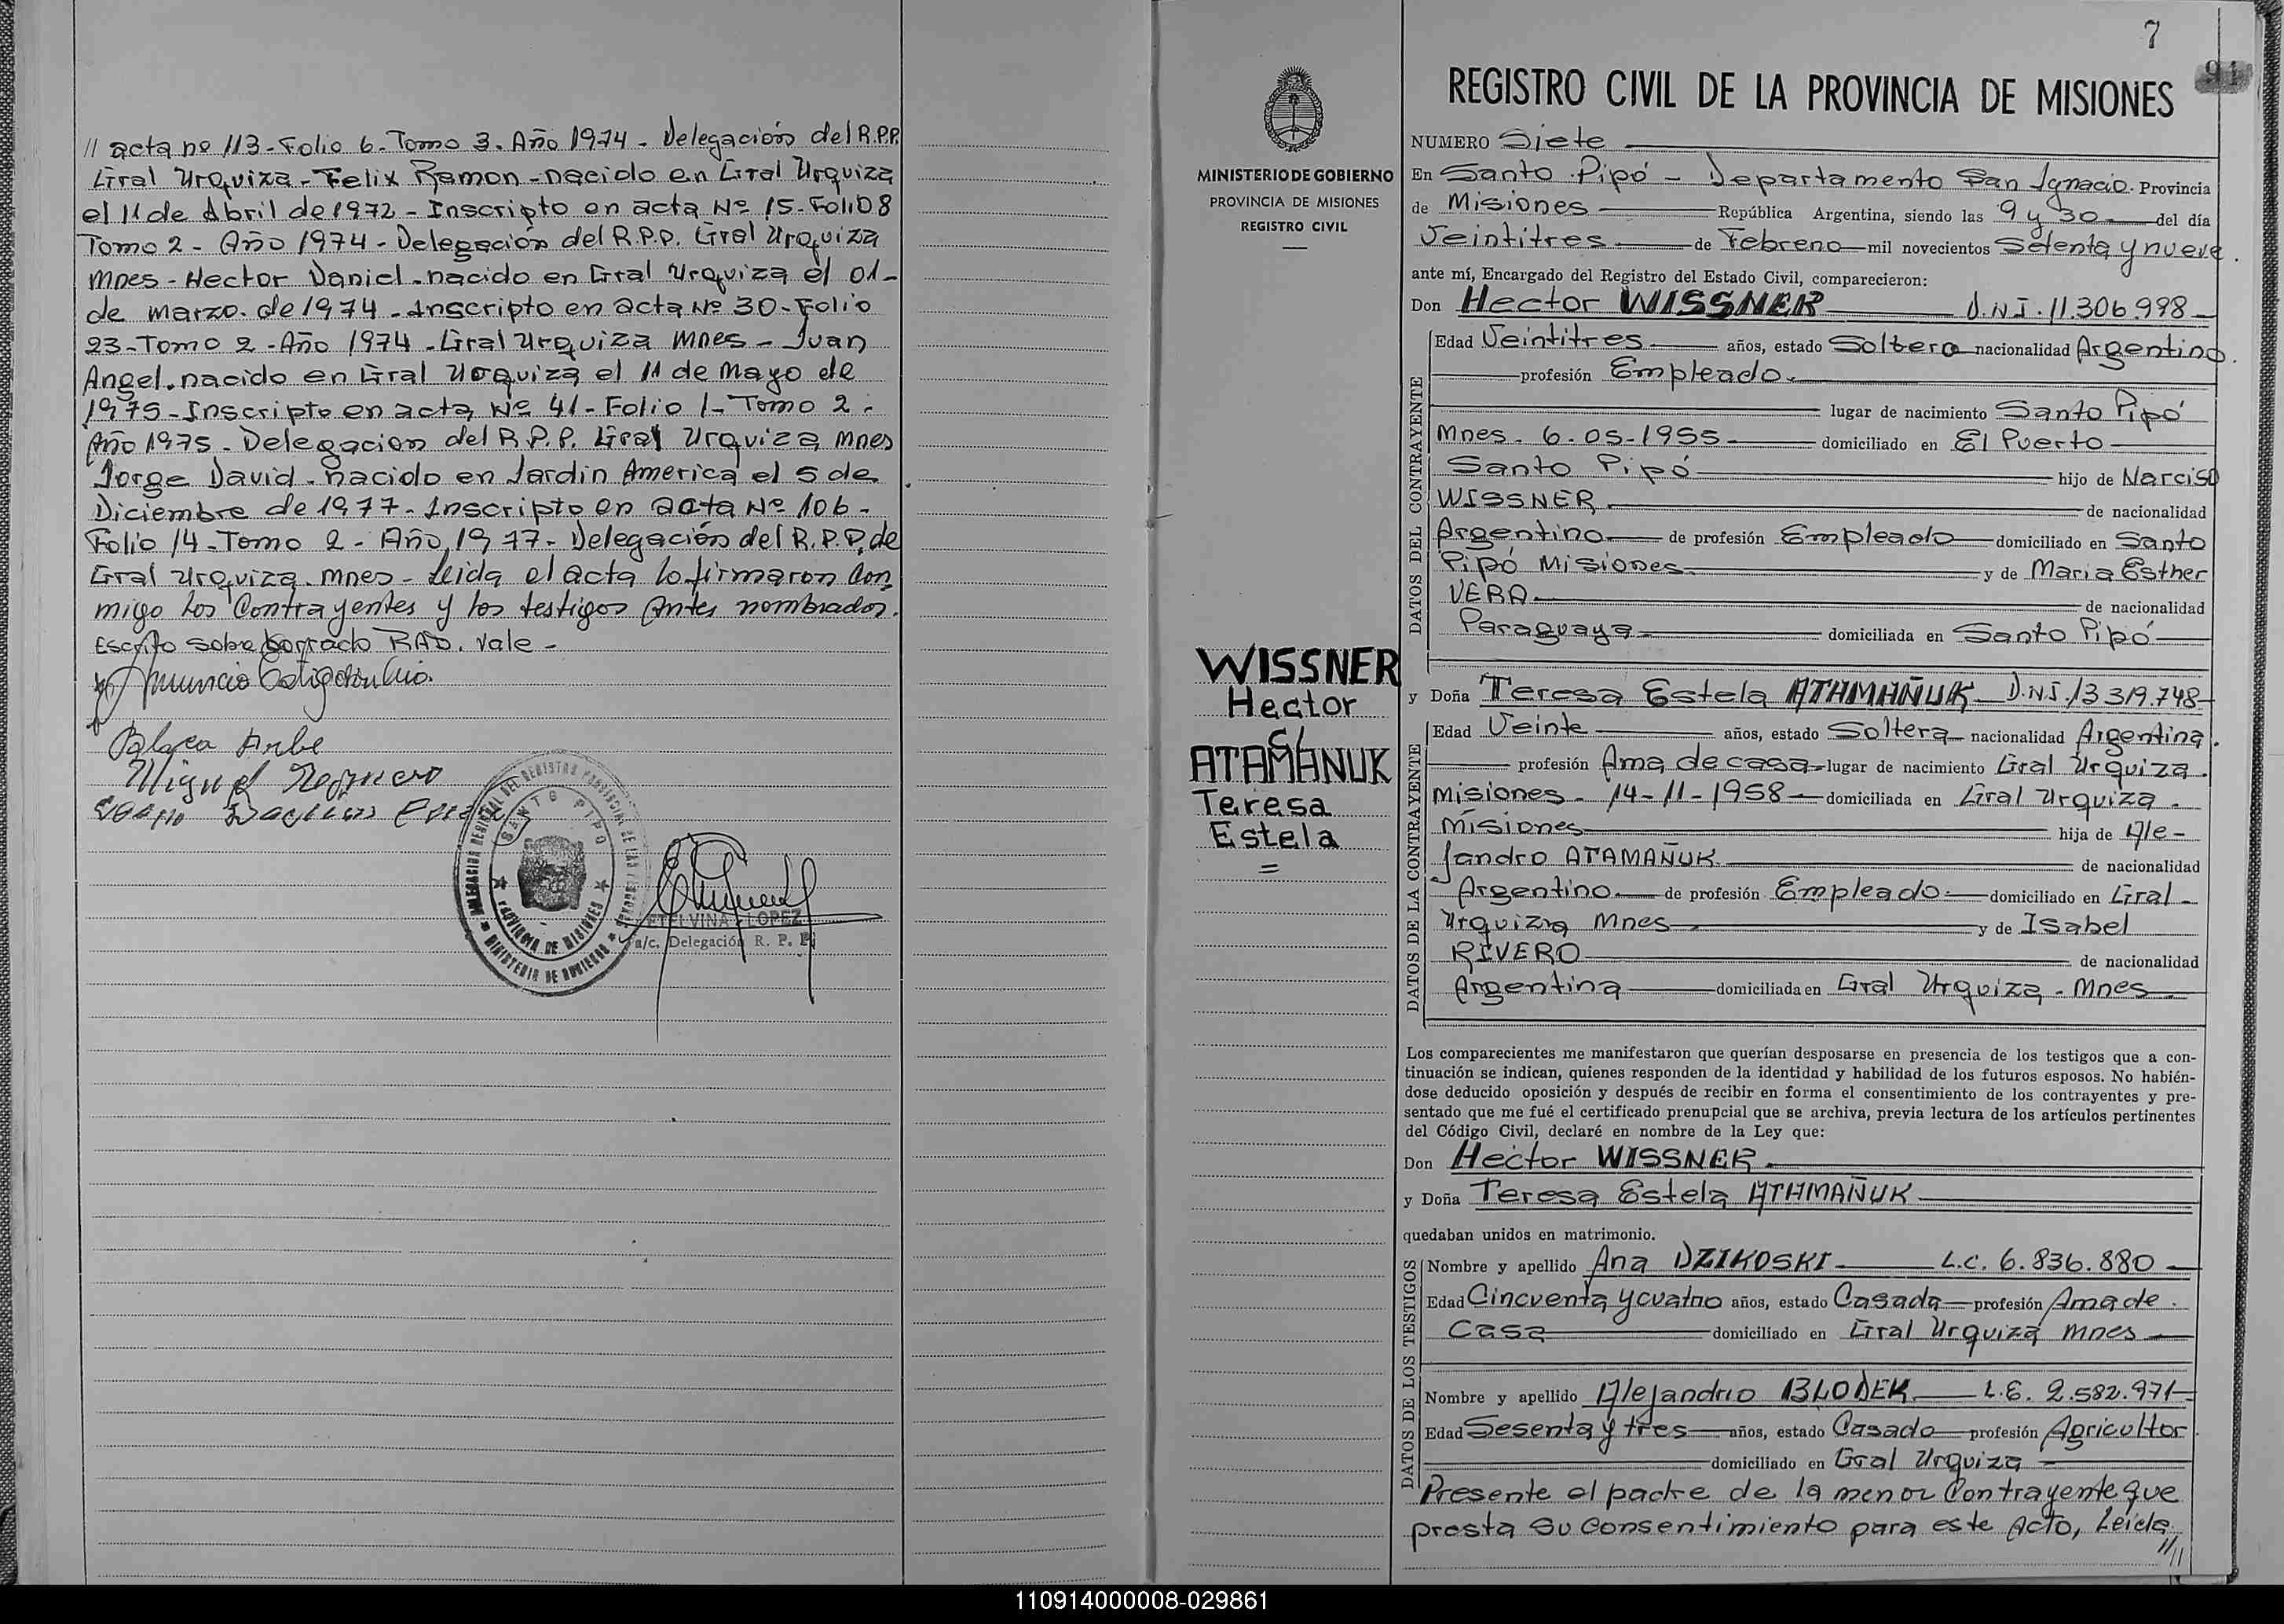 // acta nº 113 - Folio 6 - Tomo 3. Año 1974 - Delegación del R.P.P.
Gral Urquiza - Felix Ramon - nacido en Gral Urquiza
el 11 de Abril de 1972 - Inscripto en acta Nº 15 - Folio 8
Tomo 2 - Año 1974 - Delegación del R.P.P. Gral Urquiza
Mnes - Hector Daniel - nacido en Gral Urquiza el 01 -
de marzo de 1974 - Inscripto en acta Nº 30 - Folio
23 - Tomo 2 - Año 1974 - Gral Urquiza Mnes - Juan
Angel. nacido en Gral Urquiza el 11 de Mayo de
1975 - Inscripto en acta Nº 41 - Folio 1 - Tomo 2 -
Año 1975 - Delegacion del R.P.P. Gral Urquiza Mnes
Jorge David - nacido en Jardin America el 5 de
Diciembre de 1977 - Inscripto en acta Nº 106 -
Folio 14 - Tomo 2 - Año 1977 - Delegación del R.P.P. de
Gral Urquiza Mnes - Leida el acta la firmaron Con
migo los Contrayentes y los testigos Antes nombrados.
Escrito sobre borrado RAD. Vale -
SANTO PIPO
PROVINCIA DE MISIONES
MINISTERIO DE GOBIERNO
ETELVINA LOPEZ
a/c. Delegación R. P. P.
MINISTERIO DE GOBIERNO
PROVINCIA DE MISIONES
REGISTRO CIVIL
WISSNER
Hector
c/
ATAMAÑUK
Teresa
Estela
=
7
91
REGISTRO CIVIL DE LA PROVINCIA DE MISIONES
NUMERO Siete
En Santo Pipó - Departamento San Ignacio. Provincia
de Misiones República Argentina, siendo las 9 y 30 del día
Veintitres de Febrero mil novecientos Setenta y nueve.
ante mí, Encargado del Registro del Estado Civil, comparecieron:
Don Hector WISSNER D.N.I. 11.306.998
DATOS DEL CONTRAYENTE
Edad Veintitres años, estado Soltero nacionalidad Argentino.
profesión Empleado.
lugar de nacimiento Santo Pipó
Mnes. 6-05-1955 domiciliado en El Puerto
Santo Pipó hijo de Narciso
WISSNER de nacionalidad
Argentino de profesión Empleado domiciliado en Santo
Pipó Misiones y de Maria Esther
VERA de nacionalidad
Paraguaya domiciliada en Santo Pipó
y Doña Teresa Estela ATAMAÑUK D.N.I. 13.319.748
DATOS DE LA CONTRAYENTE
Edad Veinte años, estado Soltera nacionalidad Argentina.
profesión Ama de casa lugar de nacimiento Gral Urquiza.
Misiones - 14-11-1958 domiciliada en Gral Urquiza.
Misiones hija de Ale-
jandro ATAMAÑUK de nacionalidad
Argentino de profesión Empleado domiciliado en Gral
Urquiza Mnes y de Isabel
RIVERO de nacionalidad
Argentina domiciliada en Gral Urquiza - Mnes
Los comparecientes me manifestaron que querían desposarse en presencia de los testigos que a con-
tinuación se indican, quienes responden de la identidad y habilidad de los futuros esposos. No habién-
dose deducido oposición y después de recibir en forma el consentimiento de los contrayentes y pre-
sentado que me fué el certificado prenupcial que se archiva, previa lectura de los artículos pertinentes
del Código Civil, declaré en nombre de la Ley que:
Don Hector WISSNER.
y Doña Teresa Estela ATAMAÑUK
quedaban unidos en matrimonio.
DATOS DE LOS TESTIGOS
Nombre y apellido Ana DZIKOSKI L.C. 6.836.880
Edad Cincuenta y cuatro años, estado Casada profesión Ama de
Casa domiciliado en Gral Urquiza Mnes
Nombre y apellido Alejandro BLODEK L.E. 2.582.971
Edad Sesenta y tres años, estado Casado profesión Agricultor
domiciliado en Gral Urquiza
Presente el padre de la menor Contrayente que
presta su consentimiento para este Acto, Leida
////
110914000008-029861